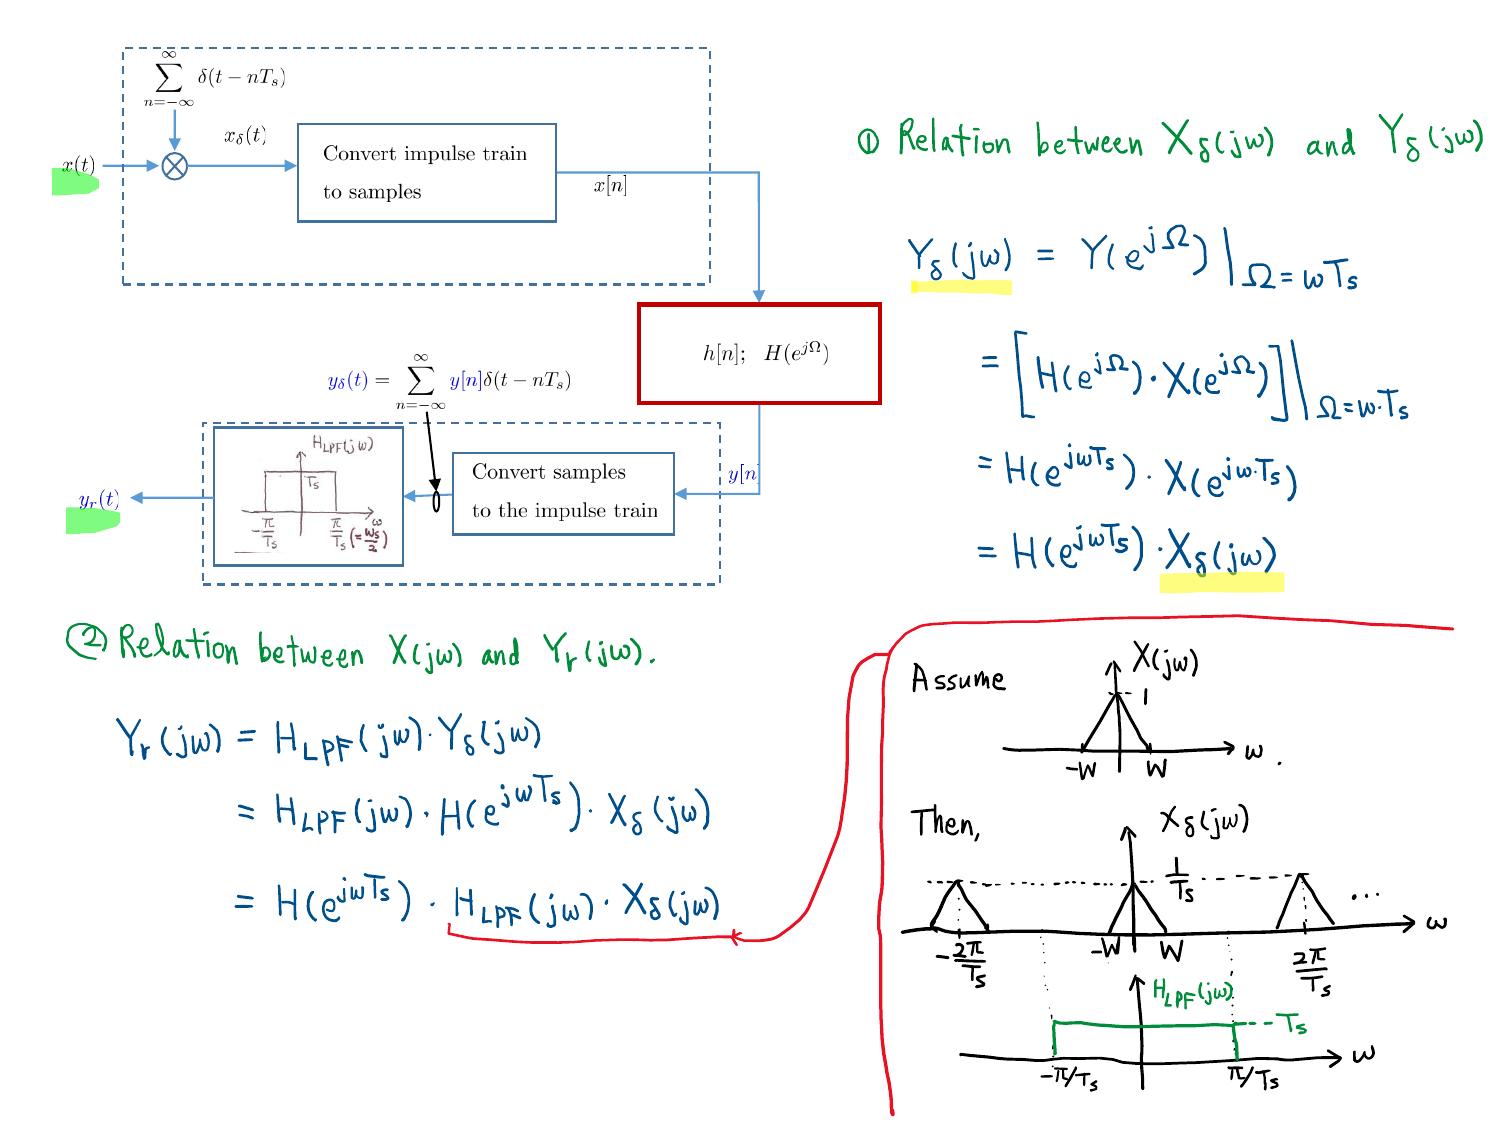 ∞
∑ δ(t − nTₛ)
n=−∞
x_δ(t)
x(t)
Convert impulse train
to samples
x[n]
h[n]; H(e^{jΩ})
∞
y_δ(t) = ∑ y[n]δ(t − nTₛ)
n=−∞
H_LPF(jω)
Tₛ
ω
-π/Tₛ π/Tₛ (=ωₛ/2)
Convert samples
to the impulse train
y[n]
y_r(t)
① Relation between X_δ(jω) and Y_δ(jω)
Y_δ(jω) = Y(e^{jΩ})|_{Ω=ωTₛ}
= [H(e^{jΩ})·X(e^{jΩ})]|_{Ω=ω·Tₛ}
= H(e^{jωTₛ})·X(e^{jω·Tₛ})
= H(e^{jωTₛ})·X_δ(jω)
② Relation between X(jω) and Y_r(jω).
Y_r(jω) = H_LPF(jω)·Y_δ(jω)
= H_LPF(jω)·H(e^{jωTₛ})·X_δ(jω)
= H(e^{jωTₛ})·H_LPF(jω)·X_δ(jω)
Assume
X(jω)
1
-W W ω .
Then,
X_δ(jω)
1/Tₛ
...
ω
-2π/Tₛ -W W 2π/Tₛ
H_LPF(jω)
Tₛ
ω
-π/Tₛ π/Tₛ